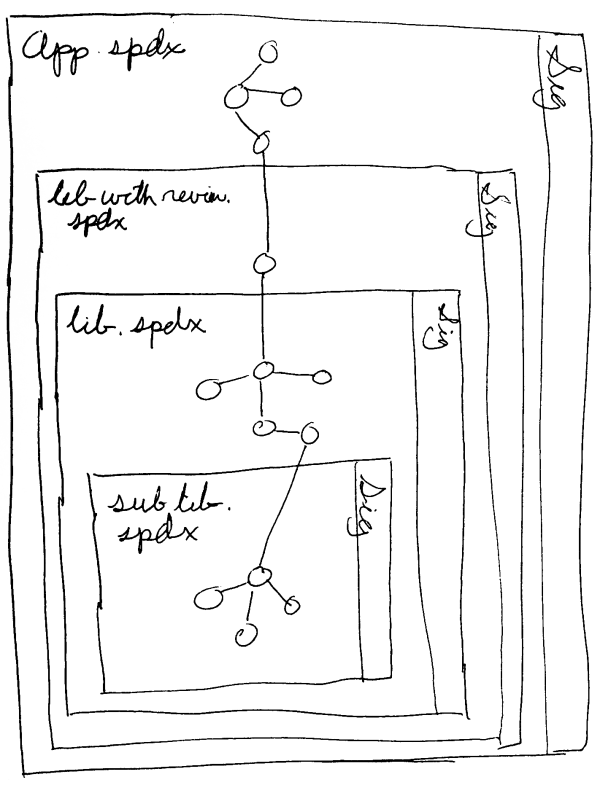 App.spdx
Sig
lib with review.
spdx
Sig
lib.spdx
Sig
sub lib.
spdx
Sig